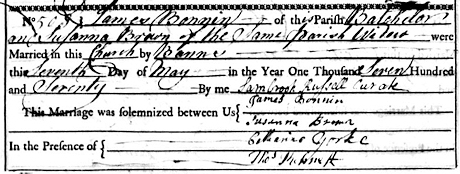 No 568 } James Bonnin of the Parish Batchelor
and Susanna Brown of the Same Parish Widow were
Married in this Church by Banns
this Seventh Day of May in the Year One Thousand Seven Hundred
and Seventy By me Sambrook Russell Curate
This Marriage was solemnized between Us { James Bonnin
Susanna Brown
In the Presence of { Catharine Yorke
Thos